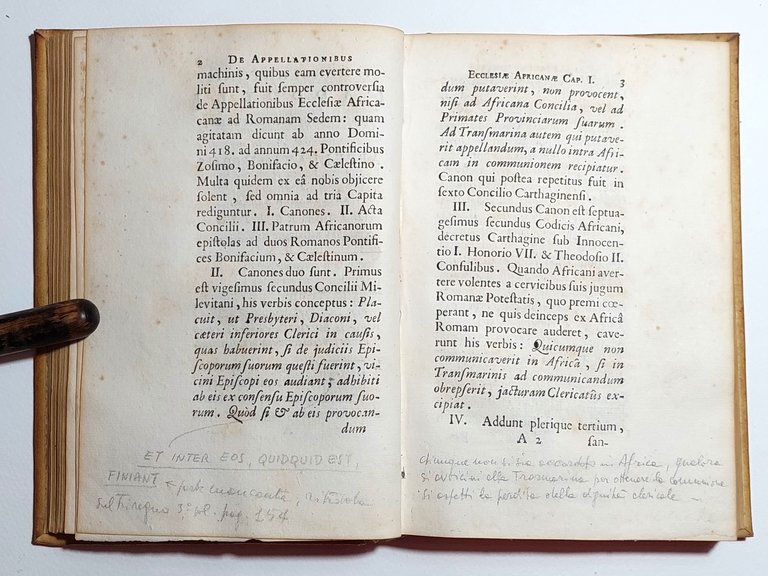 2 DE APPELLATIONIBUS
machinis, quibus eam evertere mo-
liti sunt, fuit semper controversia
de Appellationibus Ecclesiæ Africa-
canæ ad Romanam Sedem: quam
agitatam dicunt ab anno Domi-
ni 418. ad annum 424. Pontificibus
Zosimo, Bonifacio, & Cælestino.
Multa quidem ex eâ nobis objicere
solent, sed omnia ad tria Capita
rediguntur. I. Canones. II. Acta
Concilii. III. Patrum Africanorum
epistolas ad duos Romanos Pontifi-
ces Bonifacium, & Cælestinum.
II. Canones duo sunt. Primus
est vigesimus secundus Concilii Mi-
levitani, his verbis conceptus: Pla-
cuit, ut Presbyteri, Diaconi, vel
cæteri inferiores Clerici in causis,
quas habuerint, si de judiciis Epi-
scoporum suorum questi fuerint, vi-
cini Episcopi eos audiant; adhibiti
ab eis ex consensu Episcoporum suo-
rum. Quod si & ab eis provocan-
dum
ET INTER EOS, QUIDQUID EST,
FINIANT
sul Triregno 3° vol. pag. 154
ECCLESIÆ AFRICANÆ CAP. I. 3
dum putaverint, non provocent,
nisi ad Africana Concilia, vel ad
Primates Provinciarum suarum.
Ad Transmarina autem qui putave-
rit appellandum, a nullo intra Afri-
cam in communionem recipiatur.
Canon qui postea repetitus fuit in
sexto Concilio Carthaginensi.
III. Secundus Canon est septua-
gesimus secundus Codicis Africani,
decretus Carthagine sub Innocen-
tio I. Honorio VII. & Theodosio II.
Consulibus. Quando Africani aver-
tere volentes a cervicibus suis jugum
Romanæ Potestatis, quo premi cœ-
perant, ne quis deinceps ex Africâ
Romam provocare auderet, cave-
runt his verbis: Quicumque non
communicaverit in Africâ, si in
Transmarinis ad communicandum
obrepserit, jacturam Clericatûs ex-
cipiat.
IV. Addunt plerique tertium,
A 2 san-
chiunque non si sia accordato in Africa, qualora
si avvicini alla Trasmarina per ottenere la comunione
si aspetti la perdita della dignità clericale